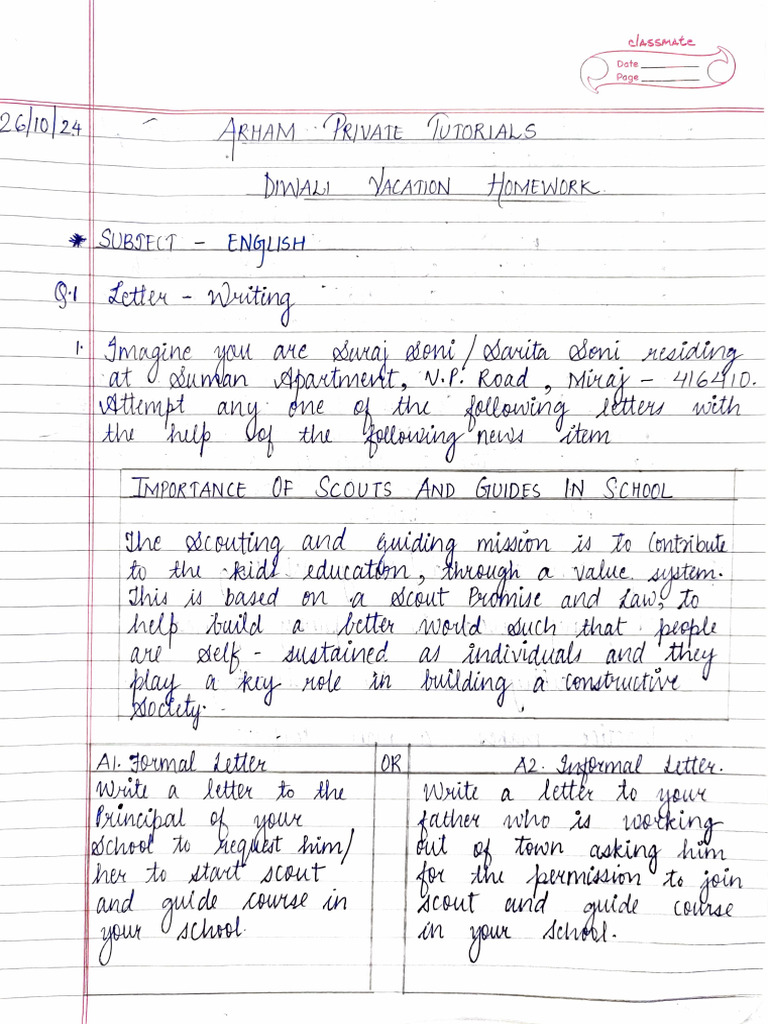 classmate
Date
Page
26/10/24
ARHAM PRIVATE TUTORIALS
DIWALI VACATION HOMEWORK
* SUBJECT - ENGLISH
Q.1 Letter - Writing
1. Imagine you are Suraj Soni / Sarita Soni residing
at Suman Apartment, N.P. Road, Miraj - 416410.
Attempt any one of the following letters with
the help of the following news item
IMPORTANCE OF SCOUTS AND GUIDES IN SCHOOL
The Scouting and guiding mission is to contribute
to the kids education, through a value system.
This is based on a Scout Promise and Law, to
help build a better world such that people
are self-sustained as individuals and they
play a key role in building a constructive
society.
A1. Formal Letter
Write a letter to the
Principal of your
School to request him/
her to start scout
and guide course in
your school.
OR
A2. Informal Letter.
Write a letter to your
father who is working
out of town asking him
for the permission to join
scout and guide course
in your school.